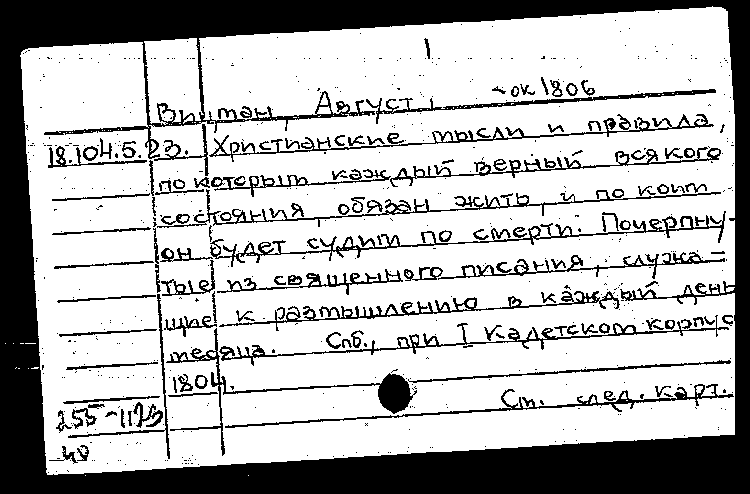 1
Витман, Август, -ок 1806
18.104.5.23. Христианские мысли и правила,
по которым каждый верный всякого
состояния, обязан жить, и по коим
он будет судим по смерти. Почерпну-
тые из священного писания, служа=
щие к размышлению в каждый день
месяца. Спб., при I Кадетском корпус
1804.
255-1195
40
См. след. карт.